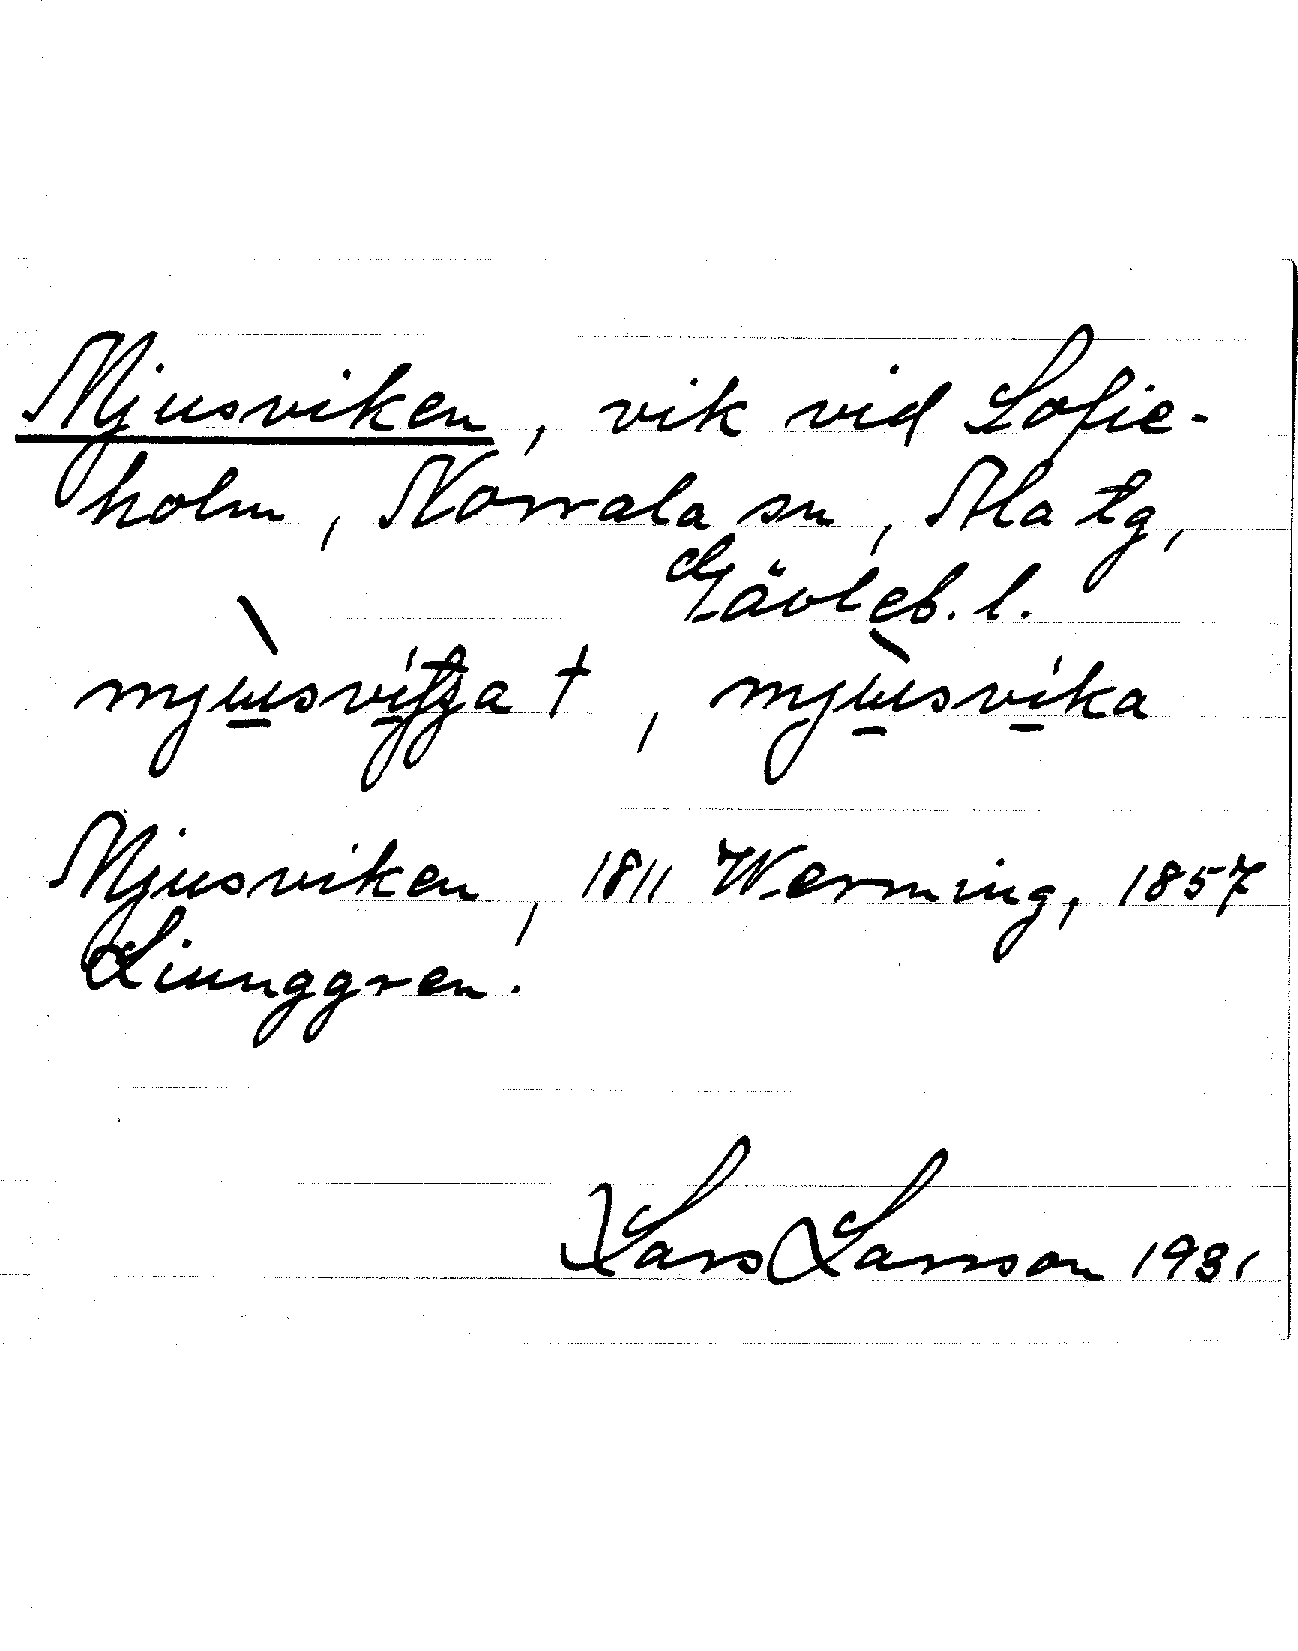 Mjusviken, vik vid Sofie-
holm, Norrala sn, Ala tg,
Gävleb. l.
†, mjɯ̀svika
Mjusviken, 1811 Werming, 1857
Liunggren.
Lars Larsson 1931